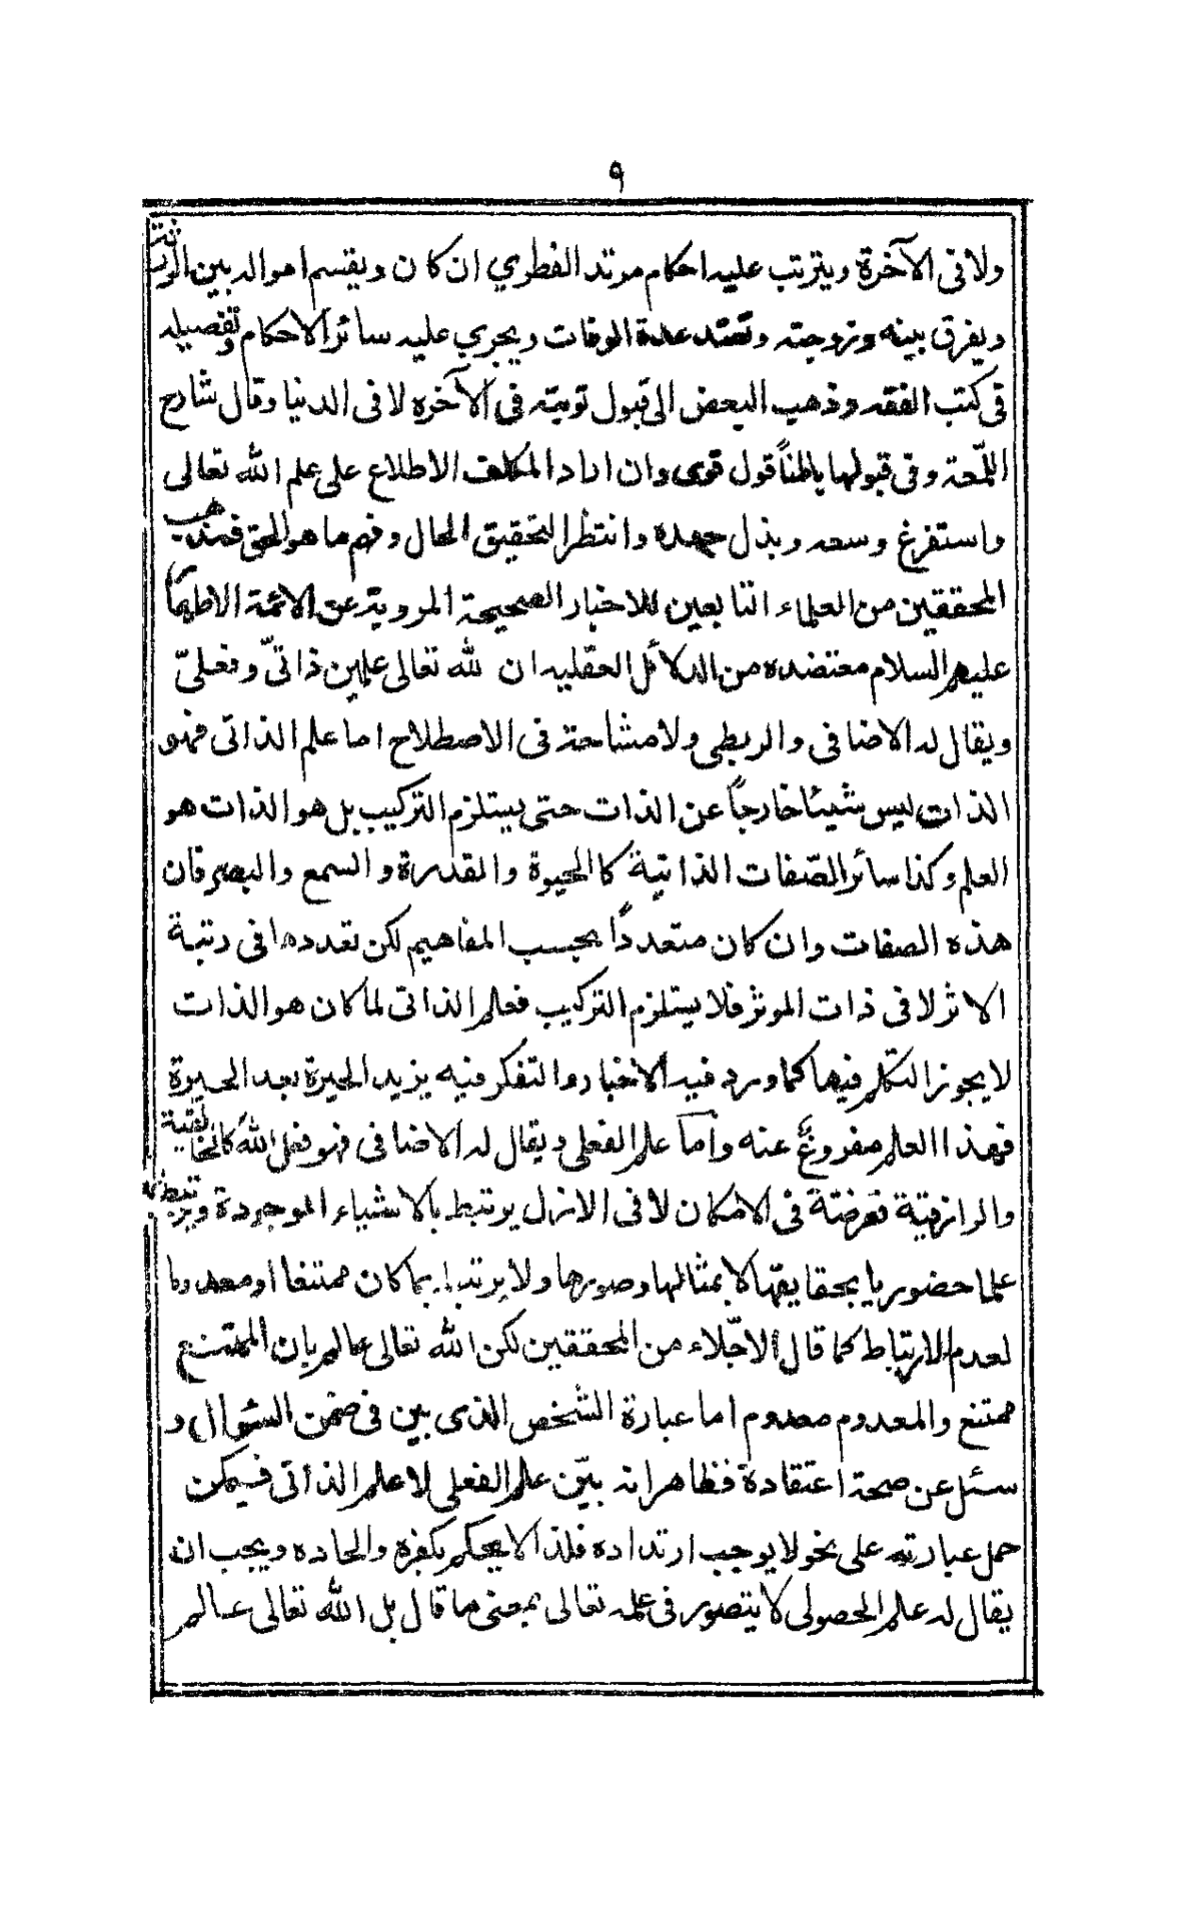 ٩
ولا فى الآخرة ويترتب عليه احكام مرتد الفطري ان كان ويقسم امواله بين الورثته
ويفرق بينه وزوجته وتعتد عدة الوفات ويجري عليه سائر الاحكام وتفصيله
فى كتب الفقه وذهب البعض الى قبول توبته فى الآخره لا فى الدنيا وقال شارح
اللّمعة وفى قبولها باطناً قول قوى وان اراد المكلف الاطلاع على علم الله تعالى
واستفرغ وسعه وبذل جهده وانتظر التحقيق الحال وفهم ما هو الحق فمذهب
المحققين من العلماء التابعين للاخبار الصحيحة المروية عن الائمة الاطهار
عليهم السلام معتضده من الدلائل العقليه ان لله تعالى علمين ذاتىّ وفعلىّ
ويقال له الاضافى والربطى ولا مشاحة فى الاصطلاح اما علم الذاتى فهو
الذات ليس شيئا خارجاً عن الذات حتى يستلزم التركيب بل هو الذات هو
العلم وكذا سائر الصّفات الذاتية كالحيوة والقدرة والسمع والبصر فان
هذه الصفات وان كان متعدداً بحسب المفاهيم لكن تعددها فى رتبة
الاثر لا فى ذات الموثر فلا يستلزم التركيب فعلم الذاتى لما كان هو الذات
لا يجوز التكلم فيها كما ورد فيه الاخبار والتفكر فيه يزيد الحيرة بعد الحيرة
فهذا العلم مفروغ عنه وأما علم الفعلى ويقال له الاضافى فهو فعل الله كالخالقية
والرازقية فى الامكان لا فى الازل يرتبط بالاشياء الموجودة ويرتبط به
علما حضوريا بحقايقها لا بمثالها وصورها ولا يرتبط بما كان ممتنعا او معدوما
لعدم الارتباط كما قال الاجّلاء من المحققين لكن الله تعالى عالم بان الممتنع
ممتنع والمعدوم معدوم اما عبارة الشخص الذى بين فى ضمن السئوال و
سئل عن صحة اعتقادة فظاهر انه بيّن علم الفعلى لا علم الذاتى فيمكن
حمل عبارته على نحو لا يوجب ارتداده فلذا لا يحكم بكفره والحاده ويجب ان
يقال له علم الحصولى لا يتصور فى علمه تعالى بمعنى ما قال بل الله تعالى عالم